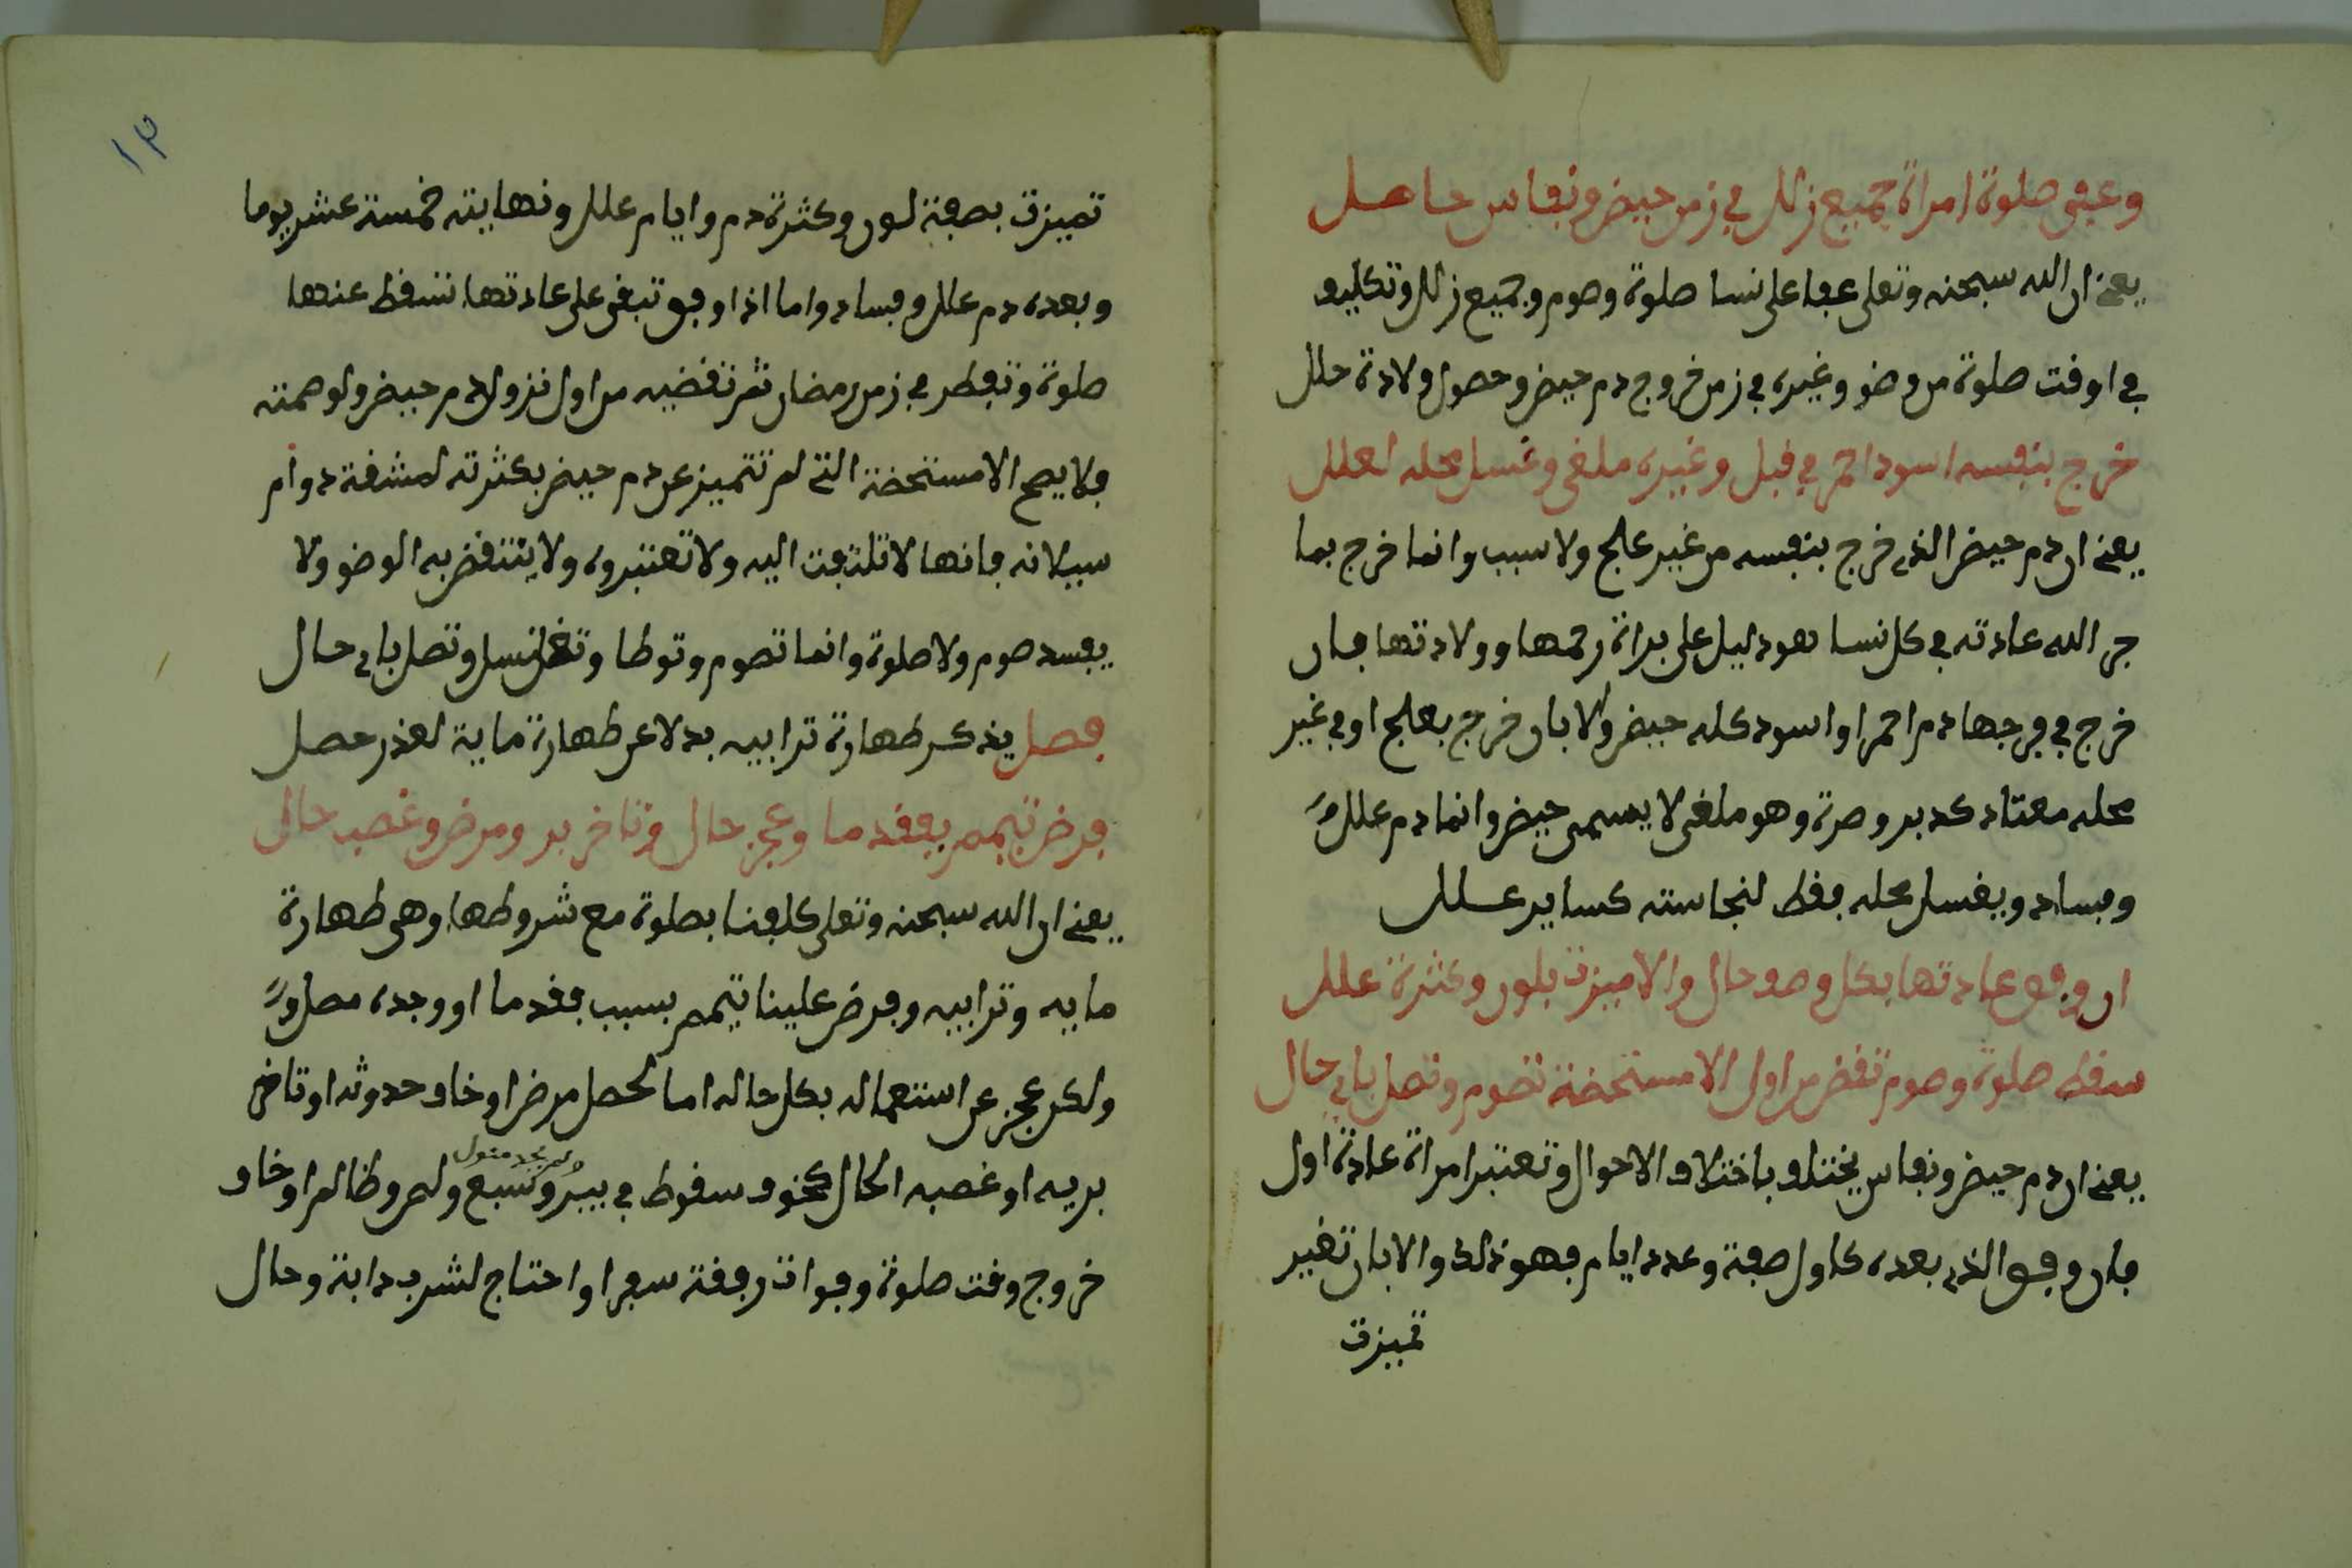 وعفى صلوة امراة جميع زلل في زمن حيض ونفاس حاصل
يعني ان الله سبحنه وتعلى عفا على نسا صلوة وصوم وجميع زلل وتكليف
في اوقت صلوة من وضو وغيره في زمن خروج دم حيض وحصول ولادة حلل
خرج بنفسه اسود احمر في قبل وغيره ملغى وغسل محله لعلل
يعني ان دم حيض الذي خرج بنفسه من غير علج ولا سبب وانما خرج بما
جر الله عادته في كل نسا هو دليل على براة رحمها وولادتها فان
خرج في فرجها دم احمر او اسود كله حيض والا بان خرج بعلج او في غير
محله معتاد كدبر وصرة وهو ملغى لا يسمى حيض وانما دم علل
وفساد ويغسل محله فقط لنجاسته كساير علل
ان وفق عادتها بكل وصف حال والا ميزت بلون وكثرة علل
سقط صلوة وصوم تقض من اول الا مستحضة تصوم وتصل باي حال
يعني ان دم حيض ونفاس يختلف باختلاف الاحوال وتعتبر امراة عادة اول
فان وفق الذي بعده كاول صفة وعدد ايام فهو ذلك والا بان تغير
تميزت
١٣
تميزت بصفة لون وكثرة دم وايام علل ونهايته خمسة عشر يوما
وبعده دم علل وفساد واما اذا وفق تبقى على عادتها تسقط عنها
صلوة وتفطر في زمن رمضان ثم تقضيه من اول نزول دم حيض ولو صمته
فلا يصح الا مستحضة التي لم تتميز عن دم حيض بكثرته لمشقة دوام
سيلانه فانها لا تلتفت اليه ولا تعتبروه ولا ينتقض به الوضو ولا
يفسد صوم ولا صلوة وانما تصوم وتوطا وتغتسل وتصل باي حال
فصل يذكر طهارة ترابيه بدلا عن طهارة ماية لعذر حصل
فرض تيمم بفقد ما وعجز حال وتاخر بر ومرض وغصب حال
يعني ان الله سبحنه وتعلى كلفنا بصلوة مع شروطها وهي طهارة
مايه وترابيه وفرض علينا تيمم بسبب فقد ما او وجده مصل
ولكن عجز عن استعماله بكل حاله اما لحصل مرض او خاف حدوثه او تاخر
بريه او غصبه الحال كخوف سقوط في بير وسبع ولص وظالم او خاف
ولم يجد منول
خروج وقت صلوة وفوات رفقة سفر او احتاج لشرب دابة وحال